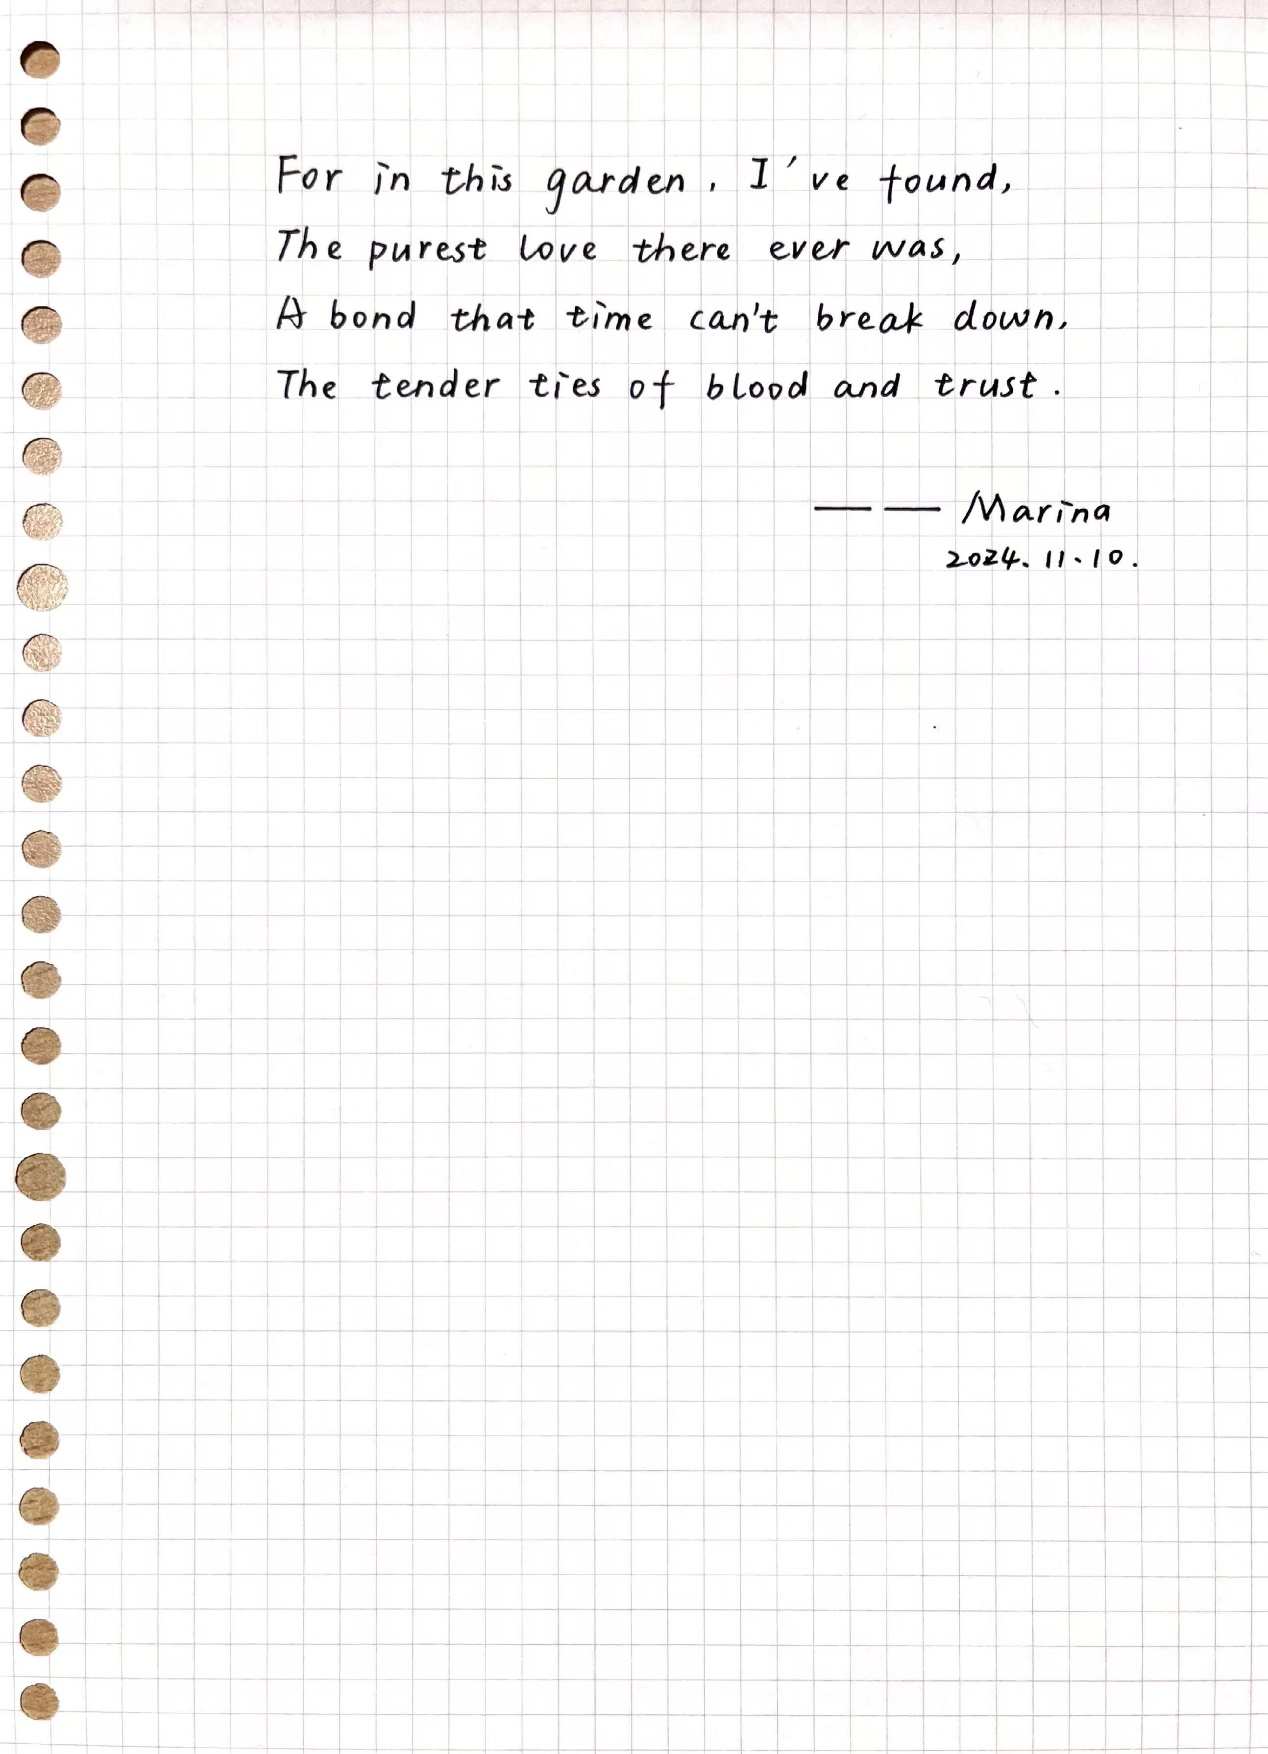 For in this garden, I've found,
The purest love there ever was,
A bond that time can't break down,
The tender ties of blood and trust.
—— Marina
2024.11.10.